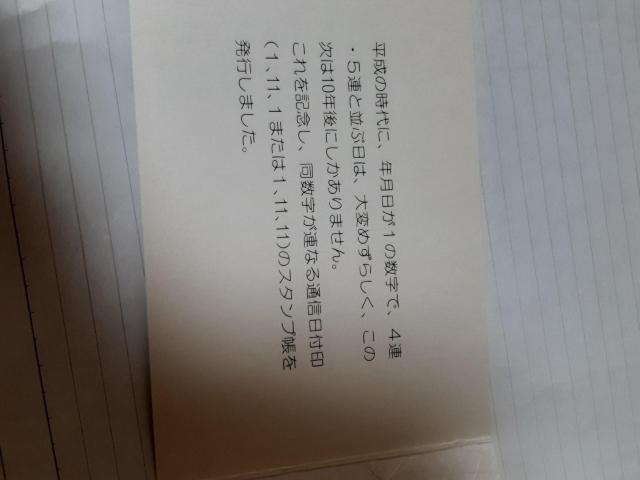 平成の時代に、年月日が１の数字で、４連
・５連と並ぶ日は、大変めずらしく、この
次は10年後にしかありません。
これを記念し、同数字が連なる通信日付印
(１、11、１または１、11、11)のスタンプ帳を
発行しました。